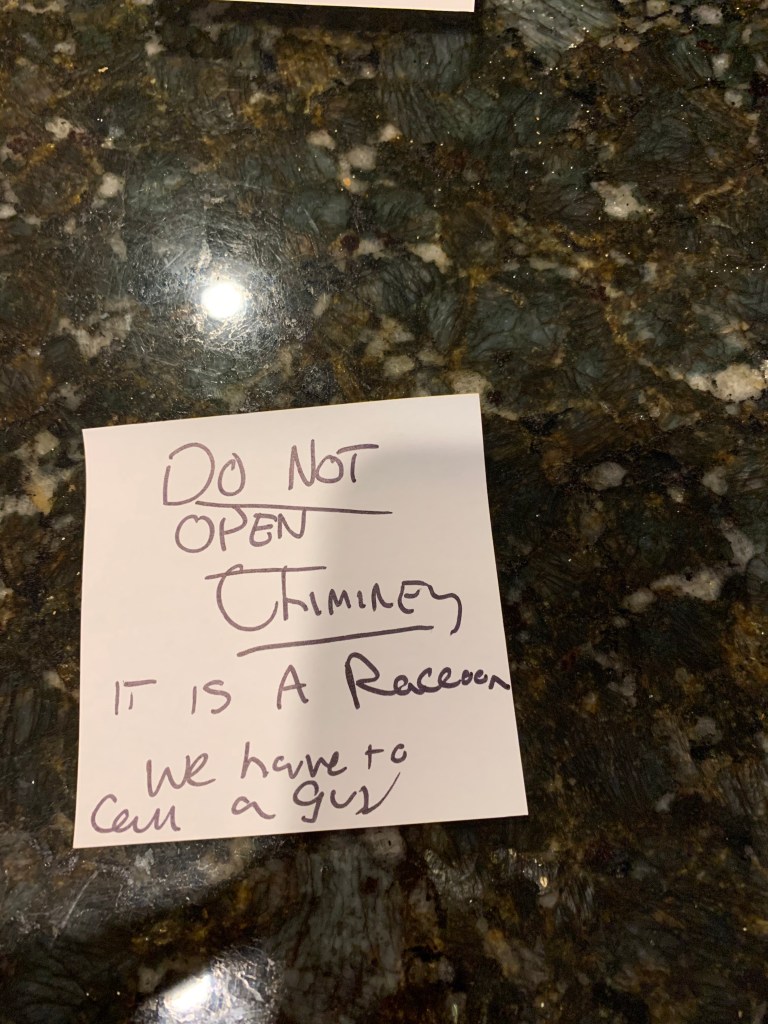 DO NOT
OPEN
CHIMINEY
IT IS A Raccoon
We have to
Call a guy